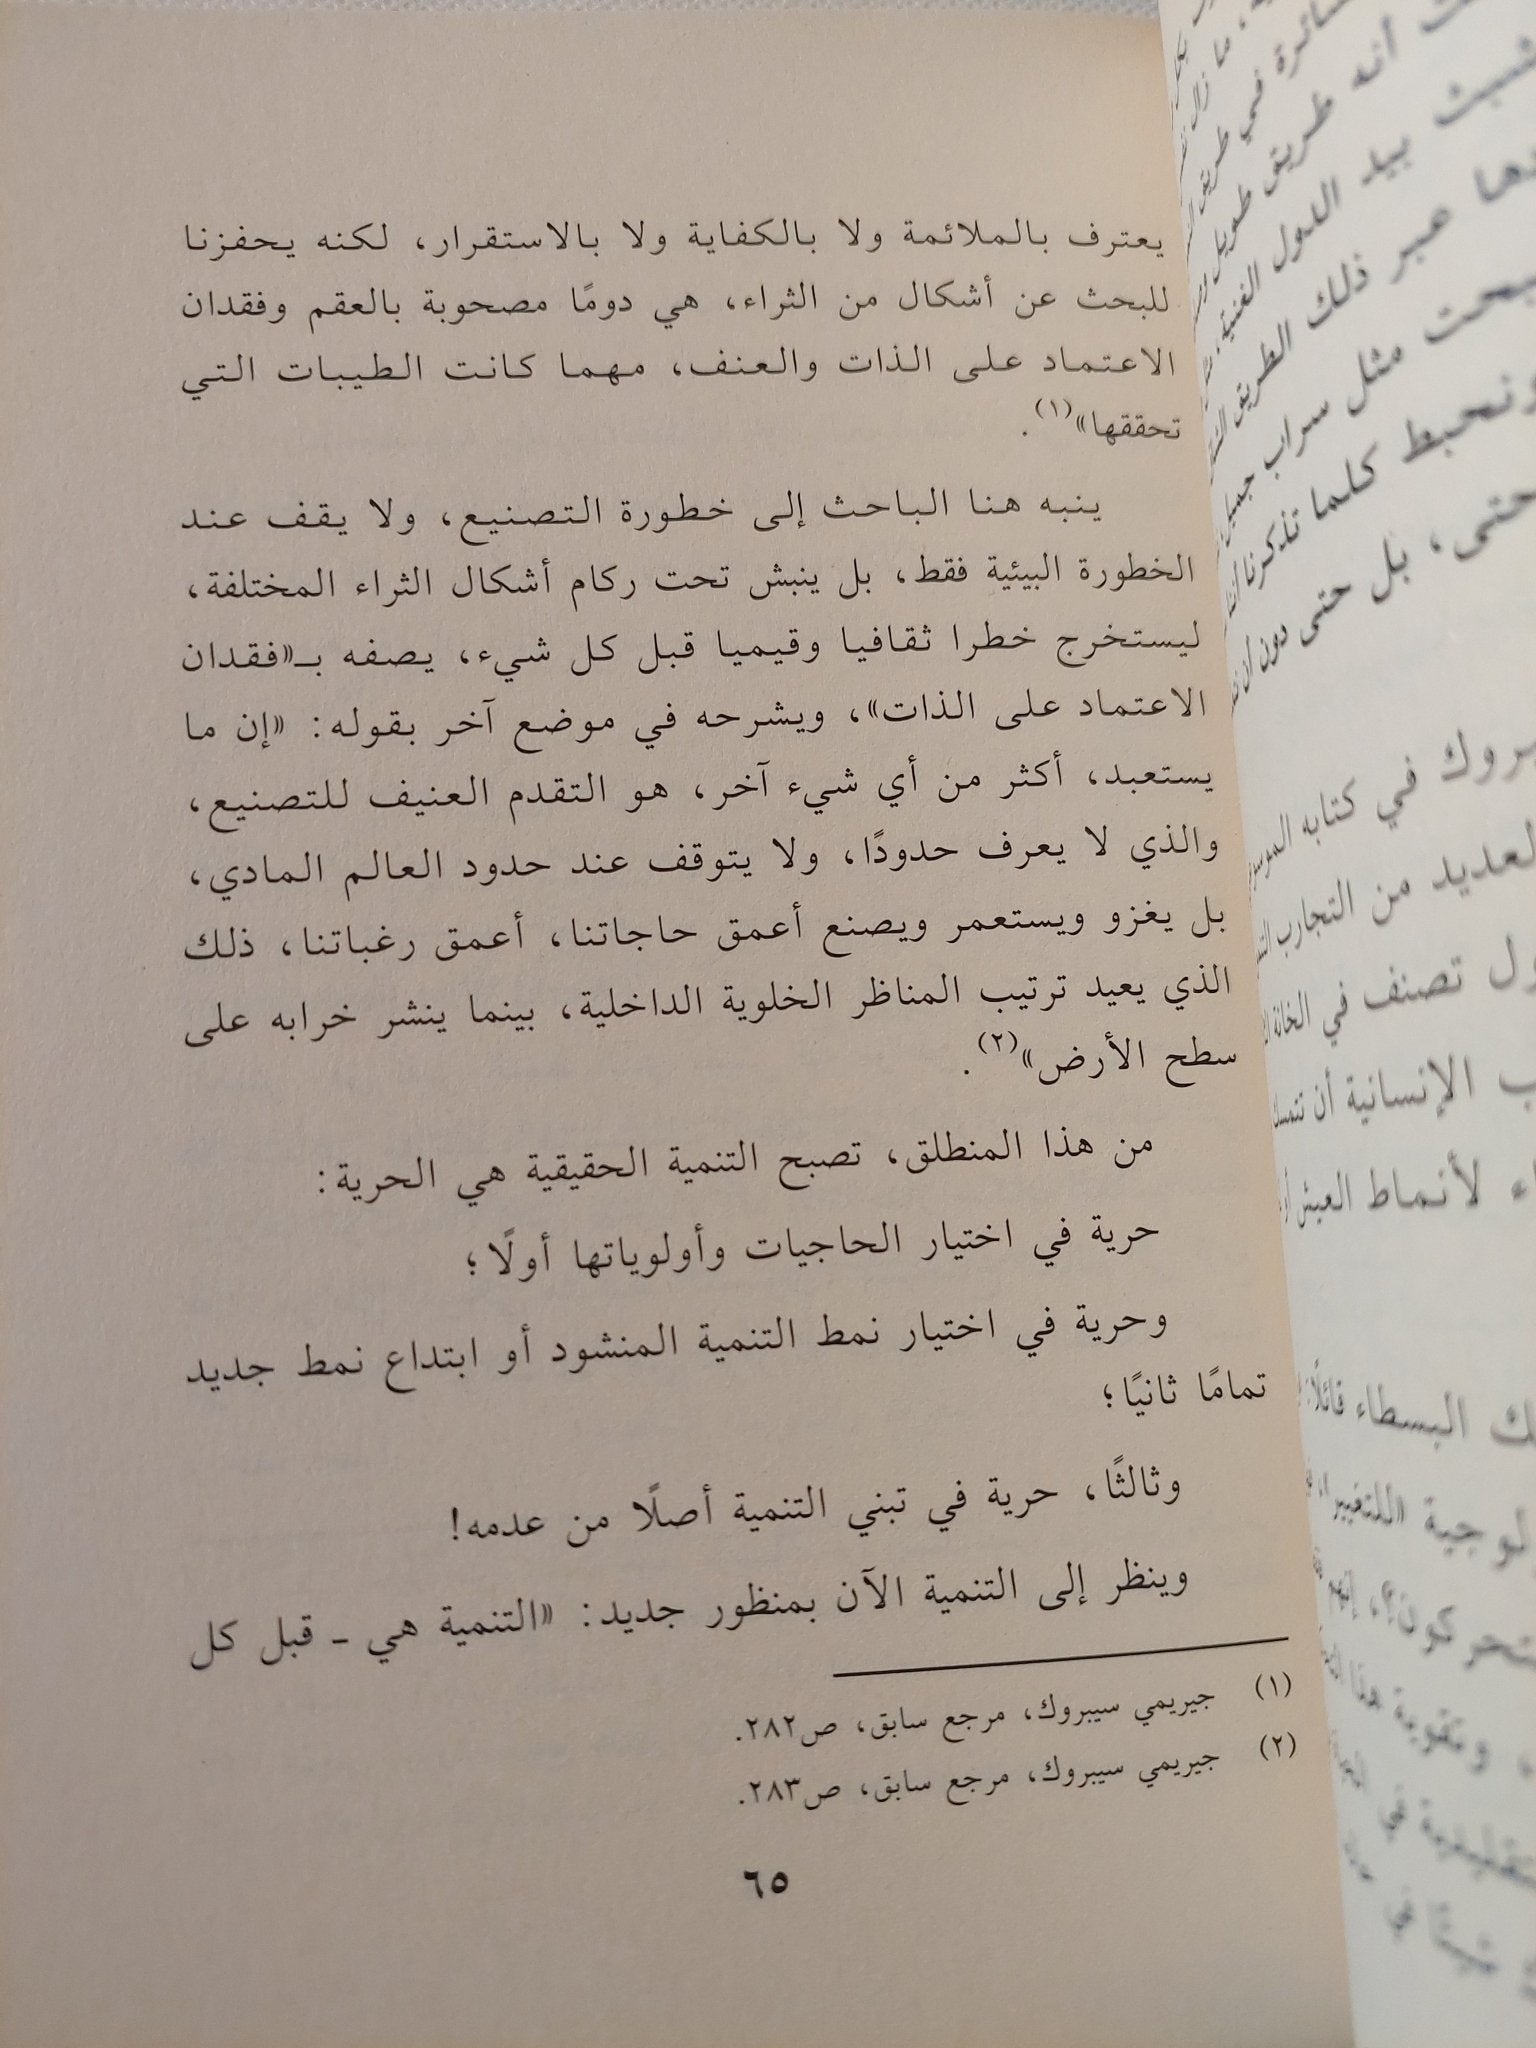 يعترف بالملائمة ولا بالكفاية ولا بالاستقرار، لكنه يحفزنا
للبحث عن أشكال من الثراء، هي دومًا مصحوبة بالعقم وفقدان
الاعتماد على الذات والعنف، مهما كانت الطيبات التي
تحققها»(١).
ينبه هنا الباحث إلى خطورة التصنيع، ولا يقف عند
الخطورة البيئية فقط، بل ينبش تحت ركام أشكال الثراء المختلفة،
ليستخرج خطرا ثقافيا وقيميا قبل كل شيء، يصفه بـ«فقدان
الاعتماد على الذات»، ويشرحه في موضع آخر بقوله: «إن ما
يستعبد، أكثر من أي شيء آخر، هو التقدم العنيف للتصنيع،
والذي لا يعرف حدودًا، ولا يتوقف عند حدود العالم المادي،
بل يغزو ويستعمر ويصنع أعمق حاجاتنا، أعمق رغباتنا، ذلك
الذي يعيد ترتيب المناظر الخلوية الداخلية، بينما ينشر خرابه على
سطح الأرض»(٢).
من هذا المنطلق، تصبح التنمية الحقيقية هي الحرية:
حرية في اختيار الحاجيات وأولوياتها أولًا؛
وحرية في اختيار نمط التنمية المنشود أو ابتداع نمط جديد
تمامًا ثانيًا؛
وثالثًا، حرية في تبني التنمية أصلًا من عدمه!
وينظر إلى التنمية الآن بمنظور جديد: «التنمية هي - قبل كل
(١) جيريمي سيبروك، مرجع سابق، ص٢٨٢.
(٢) جيريمي سيبروك، مرجع سابق، ص٢٨٣.
٦٥
أنه طريق طويل
بيد الدول الغنية،
عبر ذلك الطريق
مثل سراب جميل
ونحبط كلما تذكرنا
حتى، بل حتى دون أن
في كتابه
العديد من التجارب
تصنف في الخانة
الإنسانية أن
لأنماط العيش
البسطاء قائلًا:
«للتغيير»